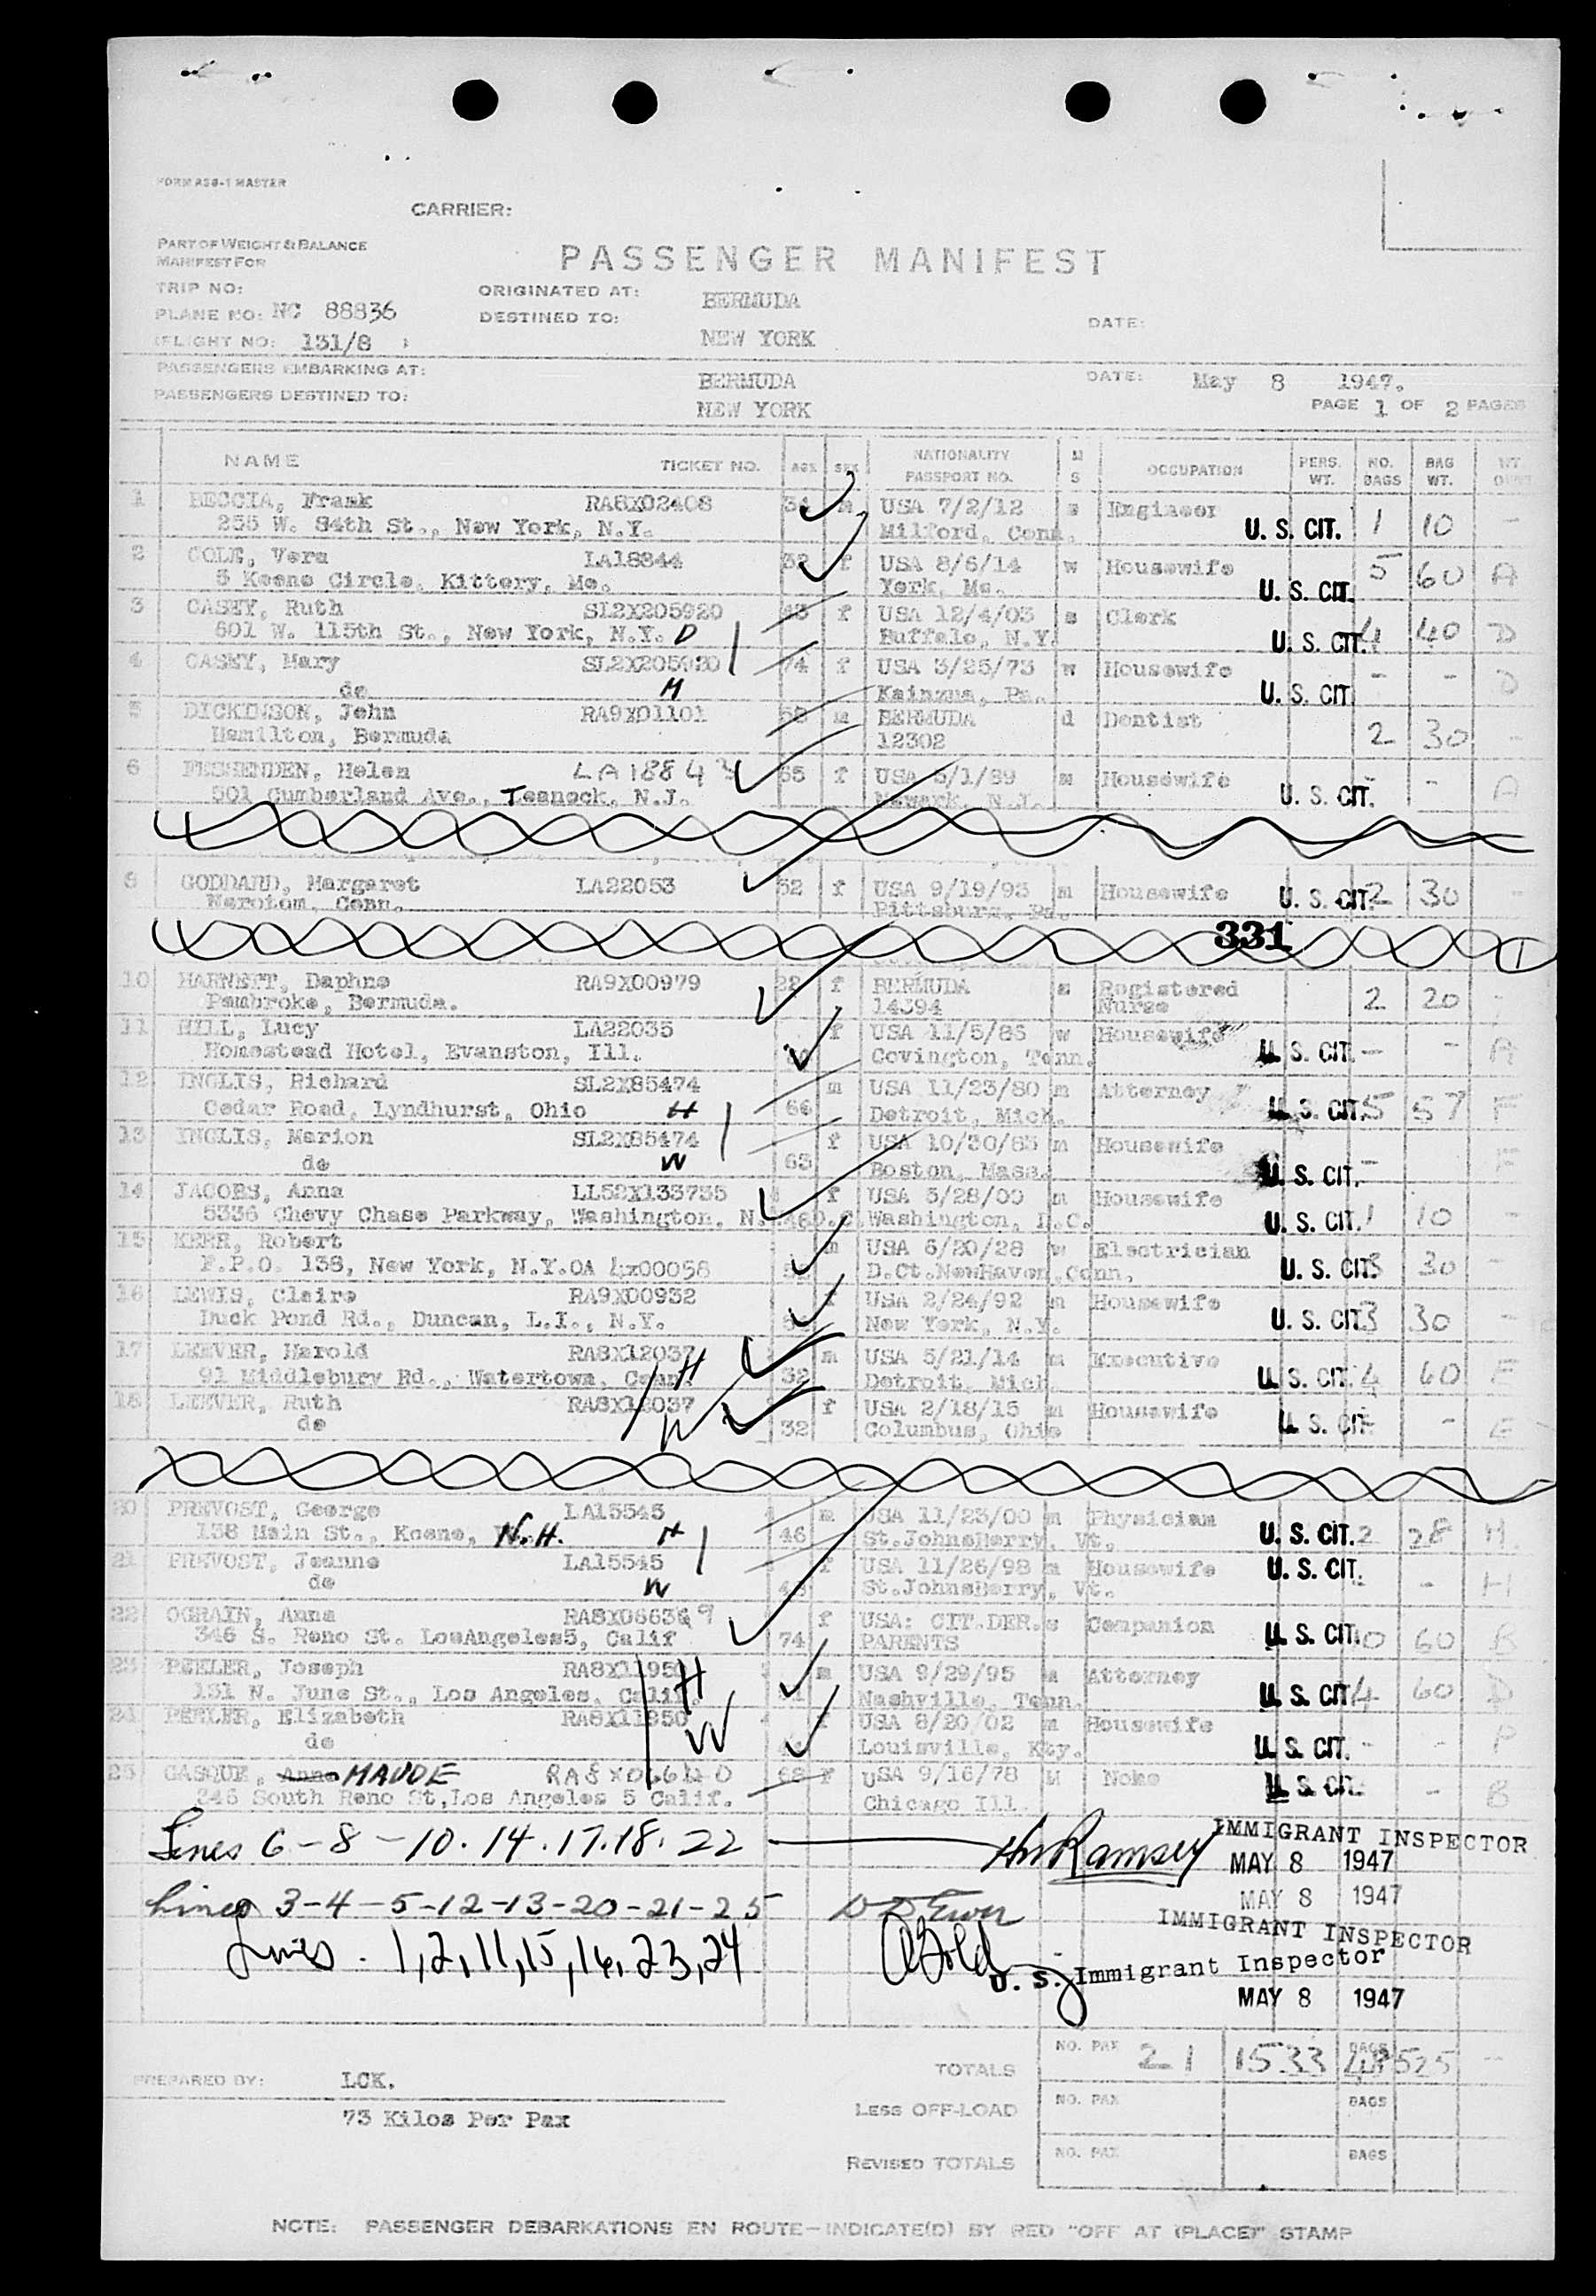 FORM ASB-1 MASTER
CARRIER:
PART OF WEIGHT & BALANCE
MANIFEST FOR
PASSENGER MANIFEST
TRIP NO:
ORIGINATED AT: BERMUDA
PLANE NO: NC 88836
DESTINED TO: NEW YORK
DATE:
FLIGHT NO: 131/8
PASSENGERS EMBARKING AT: BERMUDA
DATE: May 8 1947.
PASSENGERS DESTINED TO: NEW YORK
PAGE 1 OF 2 PAGES
NAME TICKET NO. AGE SEX NATIONALITY PASSPORT NO. M S OCCUPATION PERS. WT. NO. BAGS BAG WT.
1 BECCIA, Frank RA8X02408 34 m USA 7/2/12 s Engineer
255 W. 84th St., New York, N.Y. Milford, Conn. U. S. CIT. 1 10 -
2 COLE, Vera LA18844 32 f USA 8/6/14 w Housewife 5 60 A
5 Keene Circle, Kittery, Me. York, Me. U. S. CIT.
3 CASEY, Ruth SL2X205920 43 f USA 12/4/03 s Clerk
601 W. 115th St., New York, N.Y. D Buffalo, N.Y. U. S. CIT. 4 40 D
4 CASEY, Mary SL2X205920 74 f USA 3/25/73 w Housewife - - D
do M Kainzua, Pa. U. S. CIT
5 DICKINSON, John RA9X01101 58 m BERMUDA d Dentist
Hamilton, Bermuda 12302 2 30 -
6 FESSENDEN, Helen LA18843 65 f USA 5/1/89 m Housewife
501 Cumberland Ave., Teaneck, N.J. Newark, N.J. U. S. CIT. - - A
8 GODDARD, Margaret LA22053 52 f USA 9/19/95 m Housewife U. S. CIT. 2 30 -
Noroton, Conn. Pittsburg, Pa.
331
10 HARNETT, Daphne RA9X00979 22 f BERMUDA s Registered
Pembroke, Bermuda. 14394 Nurse 2 20 -
11 HILL, Lucy LA22035 f USA 11/5/85 w Housewife
Homestead Hotel, Evanston, Ill. Covington, Tenn. U. S. CIT. - - A
12 INGLIS, Richard SL2X85474 m USA 11/23/80 m Attorney
Cedar Road, Lyndhurst, Ohio H 66 Detroit, Mich. U. S. CIT. 5 57 F
13 INGLIS, Marion SL2X85474 f USA 10/30/83 m Housewife
do W 63 Boston, Mass. U. S. CIT. - F
14 JACOBS, Anna LL52X133735 f USA 5/28/00 m Housewife
5336 Chevy Chase Parkway, Washington, N. D.C. Washington, D.C. U. S. CIT. 1 10 -
15 KERR, Robert m USA 6/20/28 w Electrician
F.P.O. 138, New York, N.Y. OA 4x00058 D.Ct.NewHaven,Conn. U. S. CIT. 3 30 -
16 LEWIS, Claire RA9X00932 f USA 2/24/92 m Housewife
Duck Pond Rd., Duncan, L.I., N.Y. New York, N.Y. U. S. CIT. 3 30 -
17 LEEVER, Harold RA8X12037 H m USA 5/21/14 m Executive
91 Middlebury Rd., Watertown, Conn. 32 Detroit, Mich U. S. CIT. 4 60 E
18 LEEVER, Ruth RA8X12037 f USA 2/18/15 m Housewife
do W 32 Columbus, Ohio U. S. CIT - - E
20 PREVOST, George LA15545 m USA 11/23/00 m Physician
138 Main St., Keene, N.H. H 46 St.JohnsBerry, Vt. U. S. CIT. 2 28 H.
21 PREVOST, Jeanne LA15545 f USA 11/26/98 m Housewife U. S. CIT.
do W 48 St.JohnsBerry, Vt. - - H
22 OGRAIN, Anna f USA: CIT.DER. s Companion
346 S. Reno St. LosAngeles5, Calif 74 PARENTS U. S. CIT. 60 B
23 PEELER, Joseph RA8X11950 H m USA 9/29/95 m Attorney
131 N. June St., Los Angeles, Calif. 51 Nashville, Tenn. U. S. CIT 4 60 P
24 PEELER, Elizabeth RA8X11950 f USA 8/20/02 m Housewife
do W Louisville, Kty. U. S. CIT. - - P
25 GASQUE, Anna MAUDE 68 f USA 9/16/78 Nome
346 South Reno St,Los Angeles 5 Calif. Chicago Ill. U. S. CIT. - B
Lines 6-8-10.14.17.18.22 HW Ramsey IMMIGRANT INSPECTOR
MAY 8 1947
Lines 3-4-5-12-13-20-21-25 MAY 8 1947
IMMIGRANT INSPECTOR
Lines. 1,2,11,15,16,23,24 U. S. Immigrant Inspector
MAY 8 1947
TOTALS NO. PAX 21 1533 BAGS 48 525 -
PREPARED BY: LCK.
LESS OFF-LOAD NO. PAX BAGS
73 Kilos Per Pax
REVISED TOTALS NO. PAX BAGS
NOTE: PASSENGER DEBARKATIONS EN ROUTE-INDICATE(D) BY RED "OFF AT (PLACE)" STAMP